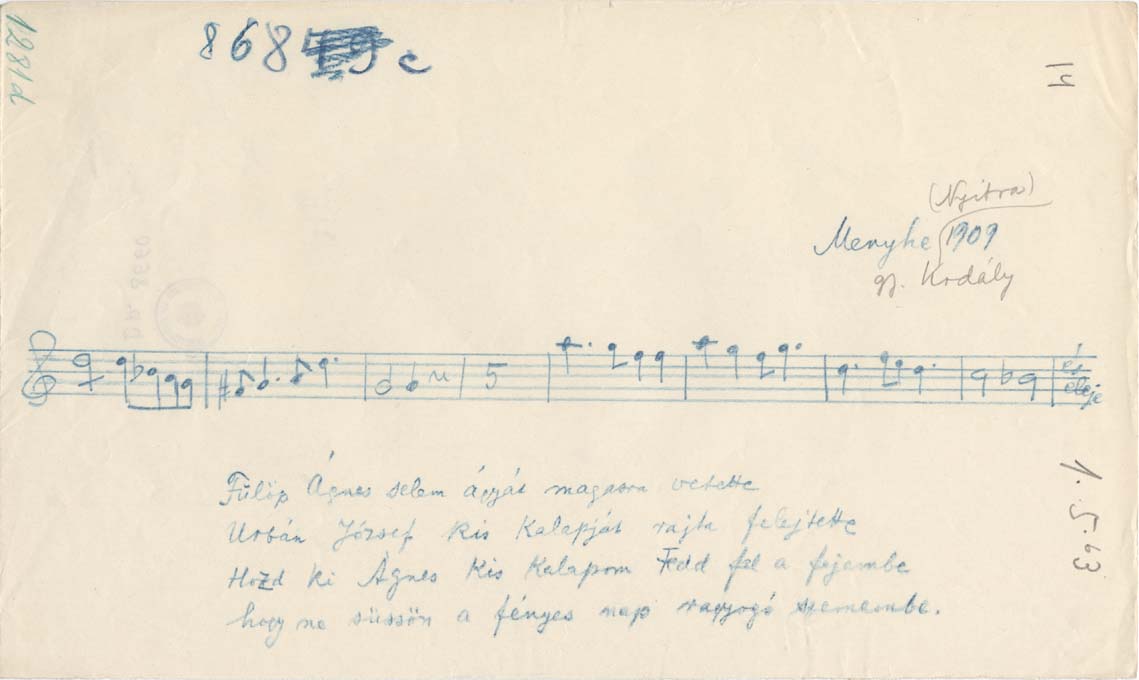 1281d
868 c
14
(Nyitra)
Menyhe 1909
gy. Kodály
5
és eleje
Fülöp Ágnes selem ágyát magasra vetette
Urbán József kis kalapját rajta felejtette
Hozd ki Ágnes kis kalapom Fedd fel a fejembe
hogy ne süssön a fényes nap ragyogó szemembe.